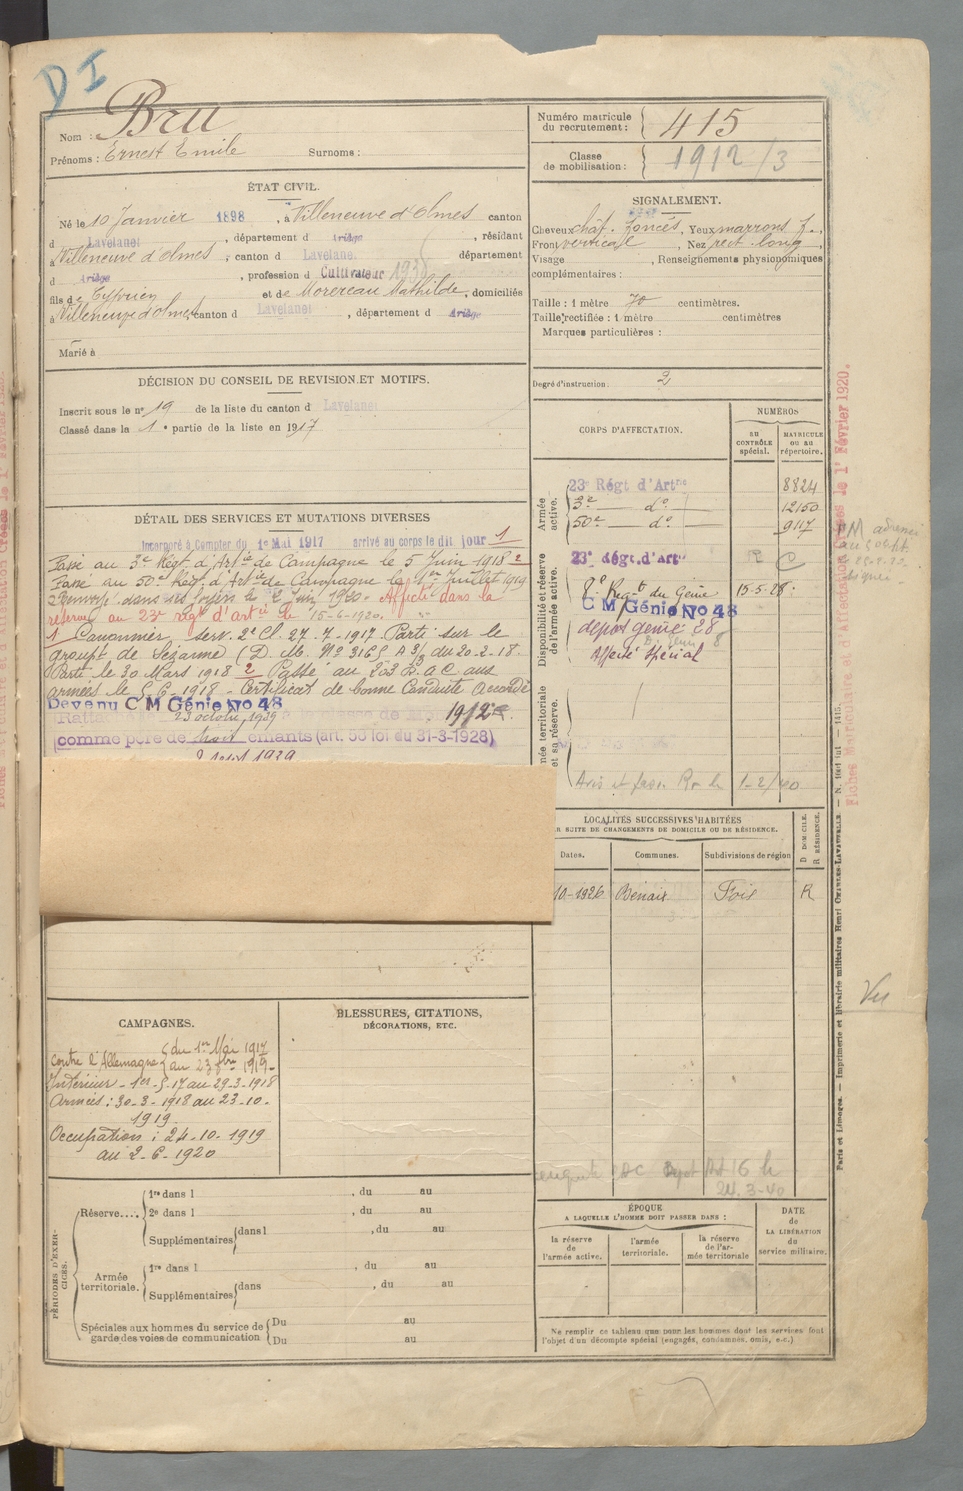 D I
Nom : Bru
Prénoms : Ernest Emile Surnoms :
Numéro matricule du recrutement : 415
Classe de mobilisation : 1912/3
ÉTAT CIVIL.
Né le 10 Janvier 1898, à Villeneuve d'Olmes canton
d Lavelanet, département d Ariège, résidant
à Villeneuve d'Olmes, canton d Lavelanet département
d Ariège, profession d Cultivateur 1930
fils de Cyprien et de Morereau Mathilde, domiciliés
à Villeneuve d'Olmes canton d Lavelanet, département d Ariège
Marié à
SIGNALEMENT.
Cheveux chât. foncés, Yeux marrons f.,
Front vertical, Nez rect. long,
Visage , Renseignements physionomiques
complémentaires :
Taille : 1 mètre 70 centimètres.
Taille rectifiée : 1 mètre centimètres
Marques particulières :
Degré d'instruction : 2
DÉCISION DU CONSEIL DE REVISION ET MOTIFS.
Inscrit sous le n° 19 de la liste du canton d Lavelanet
Classé dans la 1e partie de la liste en 1917
DÉTAIL DES SERVICES ET MUTATIONS DIVERSES
Incorporé à Compter du 1er Mai 1917 arrivé au corps le dit jour 1
Passé au 3e Régt d'Artie de Campagne le 5 Juin 1918 2
Passé au 50e Régt d'Artie de Campagne le 1er Juillet 1919
Renvoyé dans ses foyers le 2 Juin 1920. Affecté dans la
réserve au 23e régt d'artie le 15-6-1920.
1 Canonnier serv. 2e Cl. 27-7-1917. Parti sur le
groupt de Sézanne (D. M. No 3165 A 3/3 du 20-2-18.
Parti le 30 Mars 1918 2 Passé au 203 R. a C. aux
armées le 5-6-1918 - Certificat de bonne Conduite Accordé
Devenu C M Génie No 48
23 octobre 1939
1912
comme père de trois enfants (art. 58 loi du 31-3-1928)
CORPS D'AFFECTATION.
NUMÉROS
au contrôle spécial.
matricule ou au répertoire.
Armée active.
23e Régt d'Artie 8824
3e — do — 12150
50e — do — 9117
Disponibilité et réserve de l'armée active.
23e régt. d'artie
8e Régt du Génie 15-5-28
C M Génie No 48
dépot génie 28
Affecté Spécial
Armée territoriale et sa réserve.
1-2/40
LOCALITÉS SUCCESSIVES HABITÉES
R SUITE DE CHANGEMENTS DE DOMICILE OU DE RÉSIDENCE.
Dates. Communes. Subdivisions de région D DOMICILE. R RÉSIDENCE.
10-1926 Bénaix Foix R
CAMPAGNES.
Contre l'Allemagne du 1er Mai 1917
au 23 8bre 1919
Intérieur - 1er-5-17 au 29-3-1918
Armées : 30-3-1918 au 23-10-
1919
Occupation : 24-10-1919
au 2-6-1920
BLESSURES, CITATIONS,
DÉCORATIONS, ETC.
24.3-40
PÉRIODES D'EXERCICES.
Réserve.... 1re dans l , du au
2e dans l , du au
Supplémentaires dans l , du au
Armée territoriale. 1re dans l , du au
Supplémentaires dans , du au
Spéciales aux hommes du service de garde des voies de communication Du au
Du au
ÉPOQUE
A LAQUELLE L'HOMME DOIT PASSER DANS :
la réserve de l'armée active.
l'armée territoriale.
la réserve de l'armée territoriale
DATE de LA LIBÉRATION du service militaire.
Ne remplir ce tableau que pour les hommes dont les services font
l'objet d'un décompte spécial (engagés, condamnés, omis, e.c.)
Paris et Limoges. — Imprimerie et librairie militaires Henri CHARLES-LAVAUZELLE.
Fiches Matriculaire et d'Affectation Créées le 1er Février 1920.
Vu